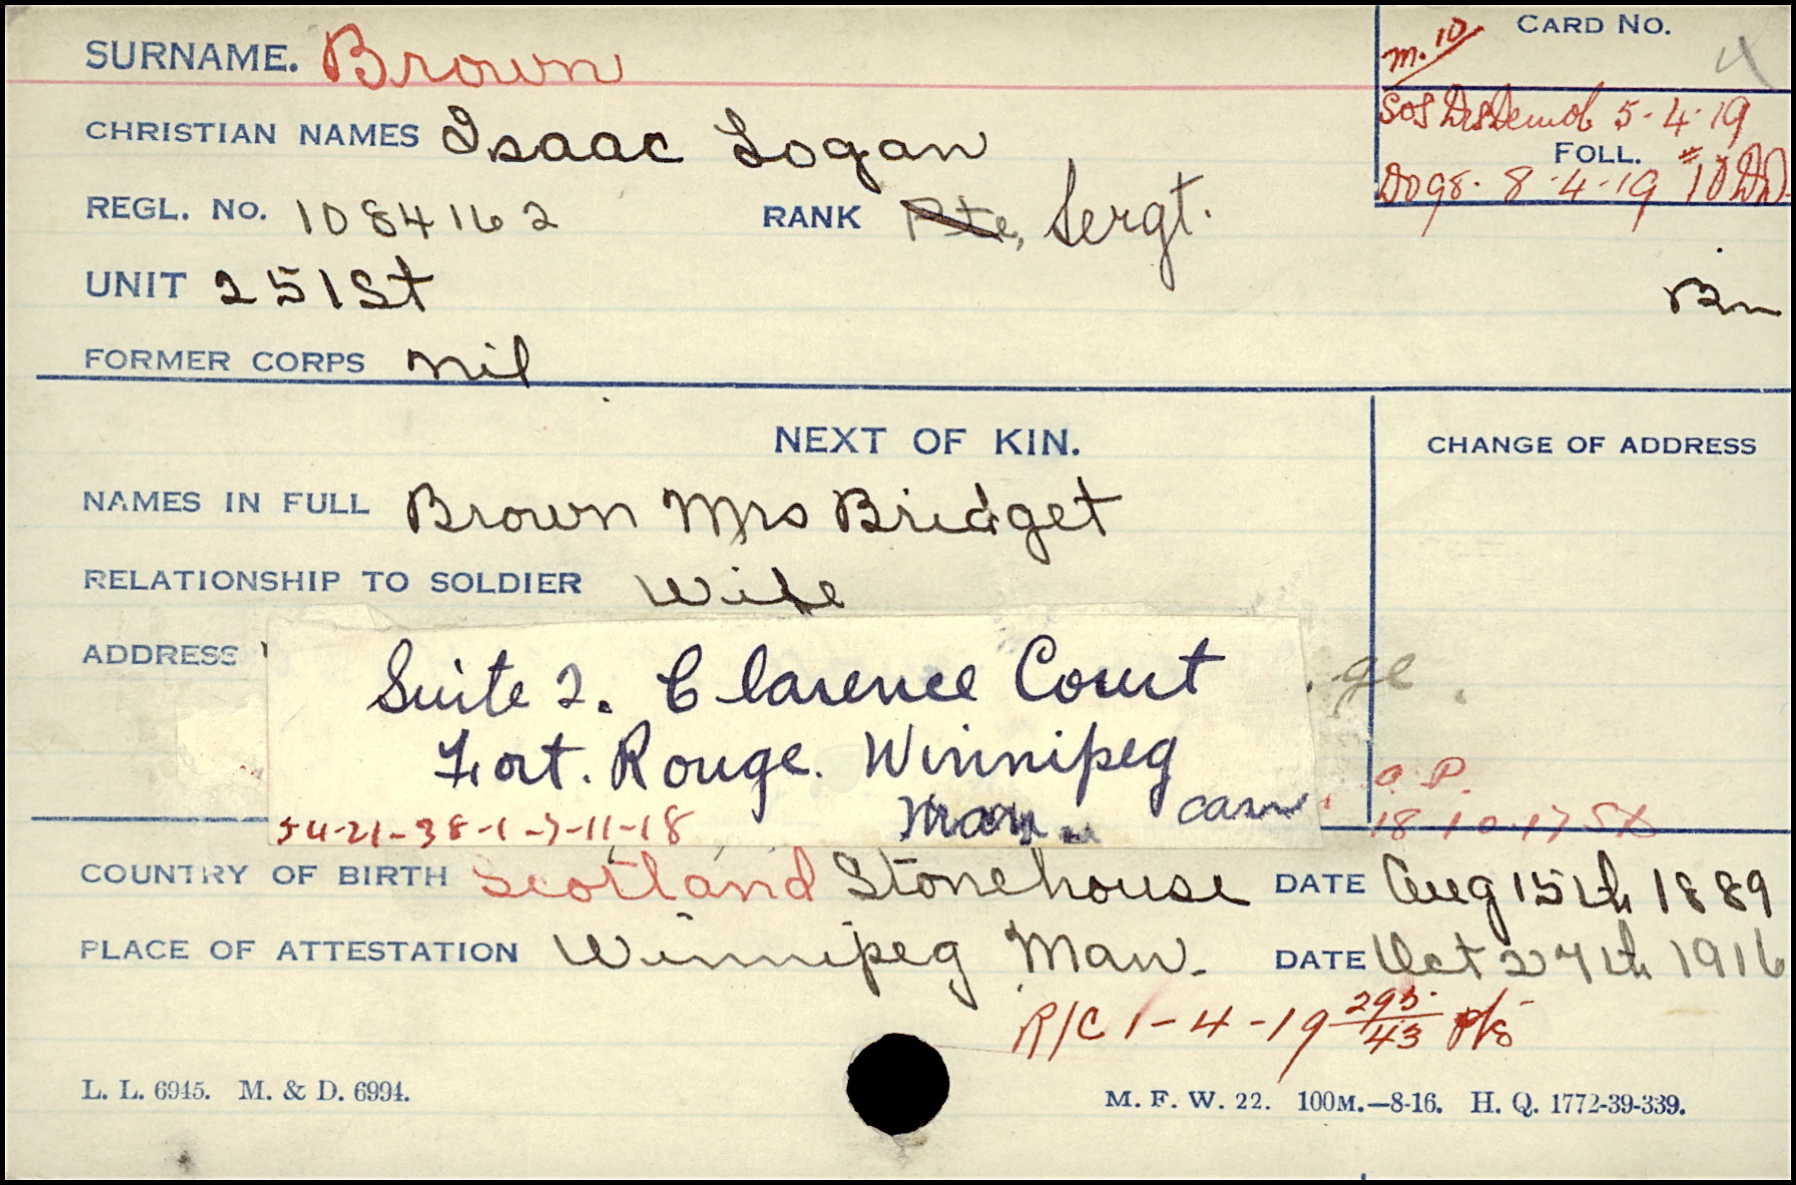 SURNAME. Brown
CARD NO.
M. 10
CHRISTIAN NAMES Isaac Logan
SOS DisDemob 5-4-19
FOLL.
REGL. No. 1084162 RANK Pte, Sergt.
DO 98. 8-4-19 #10 DD
UNIT 251St
Bn
FORMER CORPS nil
NEXT OF KIN.
CHANGE OF ADDRESS
NAMES IN FULL Brown Mrs Bridget
RELATIONSHIP TO SOLDIER Wife
ADDRESS Suite 2. Clarence Court
Fort. Rouge. Winnipeg
Man. can
54-21-38-1-7-11-18
COUNTRY OF BIRTH Scotland Stonehouse DATE Aug 15th 1889
PLACE OF ATTESTATION Winnipeg Man. DATE Oct 27th 1916
R/C 1-4-19 293/43 P/S
L. L. 6945. M. & D. 6994.
M. F. W. 22. 100M.—8-16. H. Q. 1772-39-339.